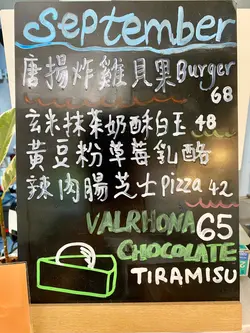 September
唐揚炸雞貝果Burger
68
玄米抹茶奶酥白玉 48
黃豆粉草莓乳酪
辣肉腸芝士Pizza 42
VALRHONA 65
CHOCOLATE
TIRAMISU